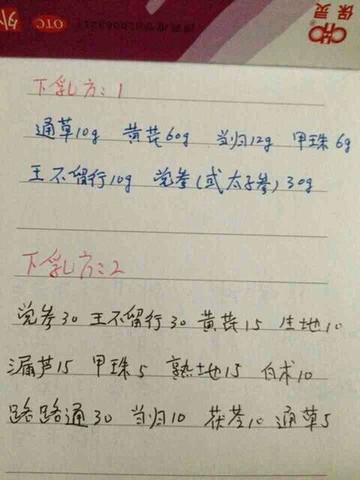 外 OTC 保灵
下乳方:1
通草10g 黄芪60g 当归12g 甲珠6g
王不留行10g 党参(或太子参)30g
下乳方:2
党参30 王不留行30 黄芪15 生地10
漏芦15 甲珠5 熟地15 白术10
路路通30 当归10 茯苓10 通草5